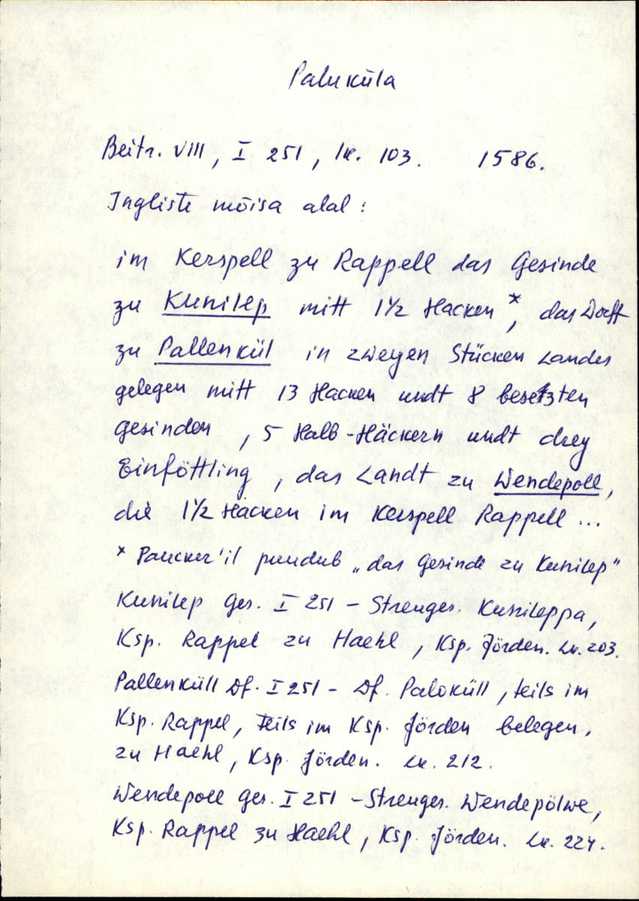 Paluküla
Beitr. VIII, I 251, lk. 103. 1586.
Ingliste mõisa alal:
im Kerspell zu Rappell das Gesinde
zu Kunilep mitt 1½ Hacken*, das Dorff
zu Pallenkül in zweyen Stücken Landes
gelegen mitt 13 Hacken undt 8 besetzten
gesinden, 5 Halb-Häckern undt drey
Einföttling, das Landt zu Wendepoll,
die 1½ Hacken im Kerspell Rappell ...
* Paucker'il puudub „das Gesinde zu Kunilep"
Kunilep Ges. I 251 – Streuges. Kunileppa,
Ksp. Rappel zu Haehl, Ksp. Jörden. Lk. 203.
Pallenküll Df. I 251 – Df. Paloküll, teils im
Ksp. Rappel, teils im Ksp. Jörden belegen,
zu Haehl, Ksp. Jörden. Lk. 212.
Wendepoll Ges. I 251 – Streuges. Wendepölwe,
Ksp. Rappel zu Haehl, Ksp. Jörden. Lk. 224.